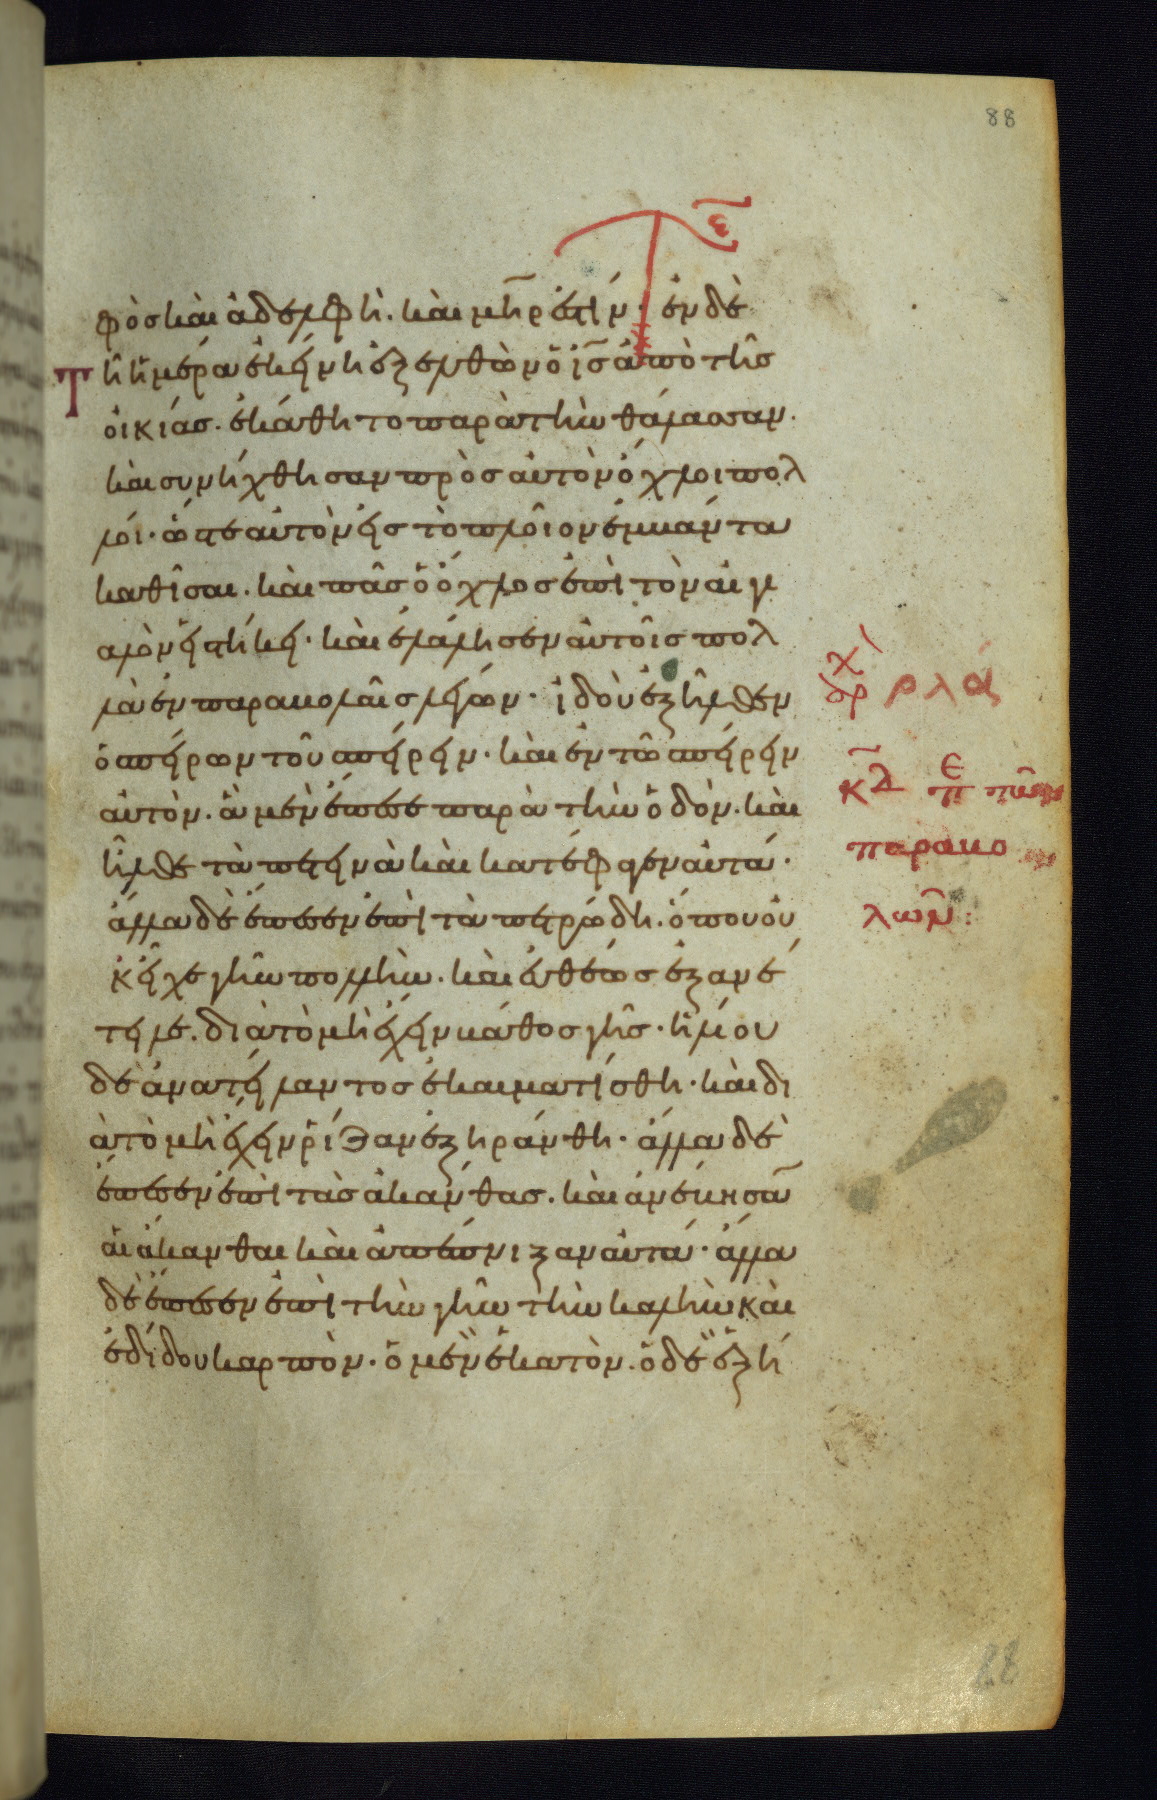 88
ε̅
φὸς καὶ ἀδελφὴ. καὶ μη̅ρ ἐστίν· ἐν δὲ
Τῆ ἡμέρα ἐκείνη ἐξελθὼν ὁ ἰς̅ ἀπὸ τῆς
οἰκίας. ἐκάθητο παρὰ τὴν θάλασσαν.
καὶ συνήχθησαν πρὸς αὐτὸν ὄχλοι πολ
λοί· ὥστε αὐτὸν εἰς τὸ πλοῖον ἐμβάντα
καθῖσαι. καὶ πᾶς ὁ ὄχλος ἐπὶ τὸν αἰγι
αλὸν εἱστήκει· καὶ ἐλάλησεν αὐτοῖς πολ
λὰ ἐν παραβολαῖς λέγων· ἰδοὺ ἐξῆλθεν
ὁ σπείρων τοῦ σπείρειν· καὶ ἐν τῶ σπείρειν
αὐτὸν. ἃ μὲν ἔπεσε παρὰ τὴν ὁδόν. καὶ
ἦλθε τὰ πετεινὰ καὶ κατέφαγεν αὐτά·
ἄλλα δὲ ἔπεσεν ἐπὶ τὰ πετρώδη. ὅπου οὐ
κ εἶχε γῆν πολλὴν. καὶ εὐθέως ἐξανέ
τειλε. διὰ τὸ μὴ ἔχειν βάθος γῆς· ἡλίου
δὲ ἀνατείλαντος ἐκαυματίσθη· καὶ δι
ὰ τὸ μὴ ἔχειν ῥίζαν ἐξηράνθη· ἄλλα δὲ
ἔπεσεν ἐπὶ τὰς ἀκάνθας. καὶ ἀνέβησα̅
αἱ ἄκανθαι καὶ ἀπέπνιξαν αὐτά· ἄλλα
δὲ ἔπεσεν ἐπὶ τὴν γῆν τὴν καλὴν καὶ
ἐδίδου καρπὸν. ὃ μὲν ἑκατὸν. ὃ δὲ ἑξή
ρλα
παραβο
λων:
88